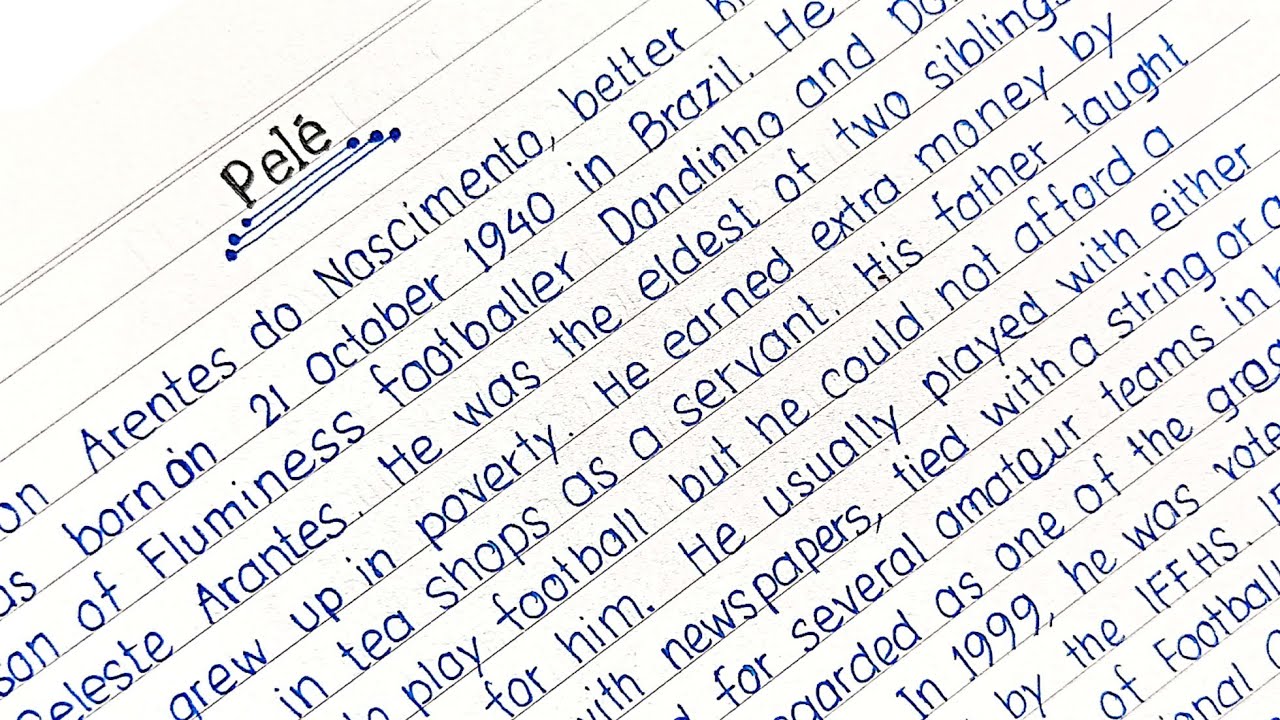 Pelé
Arentes do Nascimento, better
born on 21 october 1940 in Brazil. He
son of Fluminess footballer Dondinho and
Arantes. He was the eldest of two siblings
grew up in poverty. He earned extra money by
in tea shops as a servant. His father taught
play football but he could not afford a
for him. He usually played with either
with newspapers, tied with a string or a
for several amataur teams in
as one of the
In 1999, he was
by the IFFHS.
of Football